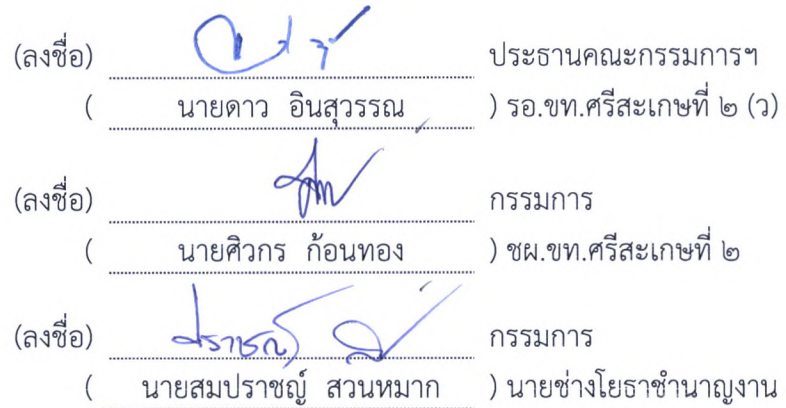 (ลงชื่อ) ประธานคณะกรรมการฯ
( นายดาว อินสุวรรณ ) รอ.ขท.ศรีสะเกษที่ ๒ (ว)
(ลงชื่อ) กรรมการ
( นายศิวกร ก้อนทอง ) ชผ.ขท.ศรีสะเกษที่ ๒
(ลงชื่อ) กรรมการ
( นายสมปราชญ์ สวนหมาก ) นายช่างโยธาชำนาญงาน